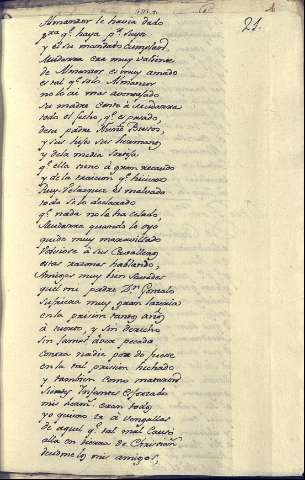 21.
Almanzor le havia dado
pra q.e haya p.r suyo
y él su mandado cumpliera.
Mudarra era muy valiente
de Almanzor es muy amado
es tal q.e solo Almanzor
no lo ai mas aventajado
su madre conto à Mudarra
todo el fecho, q.e es pasado,
de su padre Nuño Bustos,
y sus hijos sus hermanos,
y de la media sortija
q.e ella tiene à gran recaudo
y de la traicion q.e hiciera
Ruy Velazquez el malvado
toda se la declarado
q.e nada no la ha celado,
Mudarra quando lo oyo
quedo muy maravillado
Volviose à sus Cavalleros
estas razones hablando,
Amigos muy bien savedes
que mi padre D.n Gonzalo
sufriera muy gran laceria
en la prision tantos años
à tuerto, y sin derecho
sin famas aver pecado
contra nadie por do fuese
en la tal prision hechado
y tambien como mataron
Siete Ynfantes esforzados
mis herman.s eran todos
yo quiero ir à vengallos
de aquel q.e tal mal causó
alla en tierra de Christian.s
decidme los mis amigos,